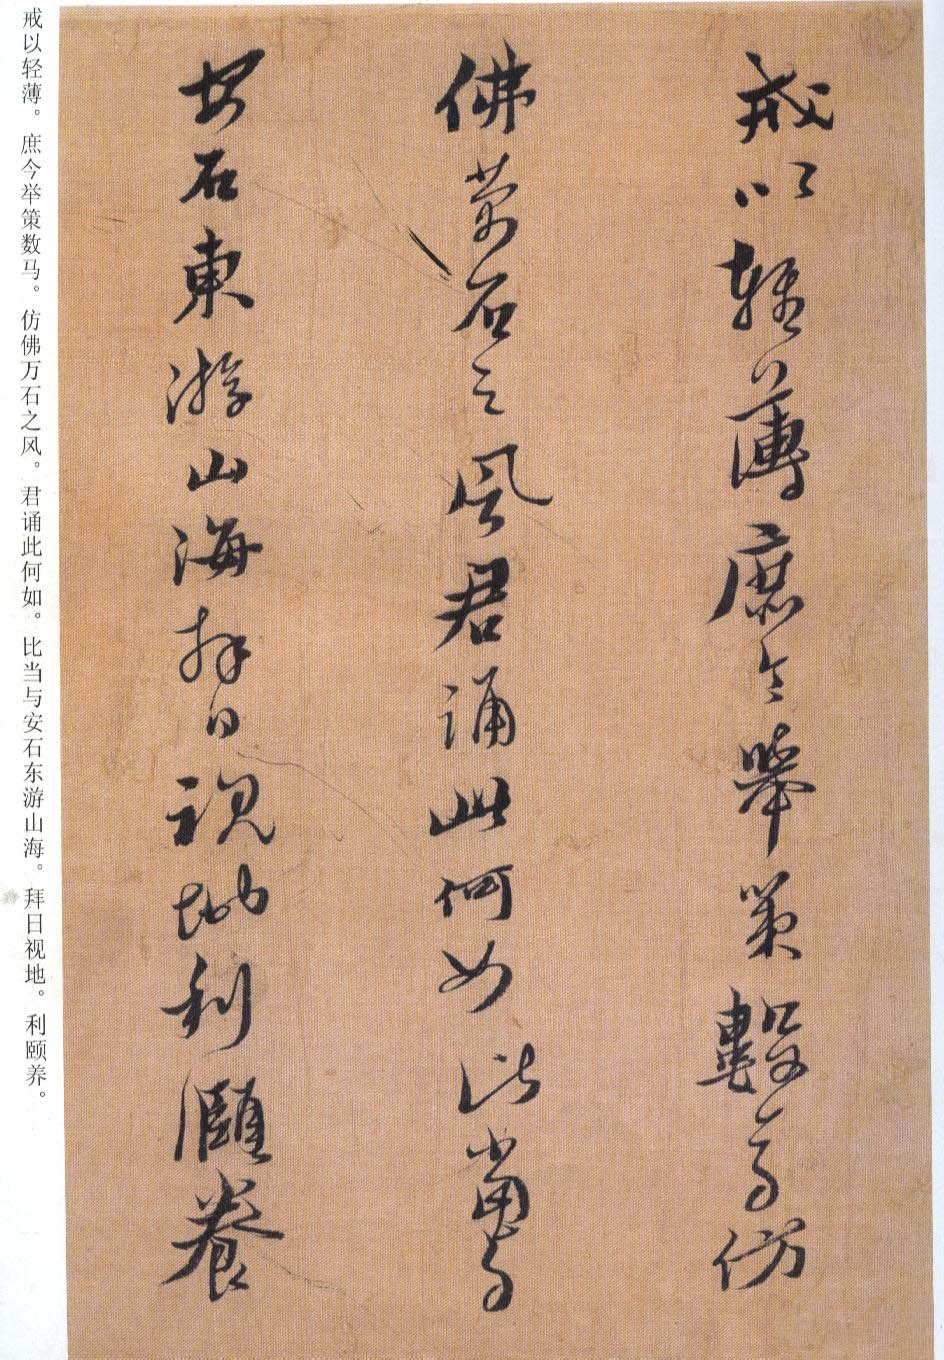 戒以輕薄庶今舉策數馬仿
佛萬石之風君誦此何如比當与
安石東游山海拜日視地利頤養
戒以轻薄。庶今举策数马。仿佛万石之风。君诵此何如。比当与安石东游山海。拜日视地。利颐养。